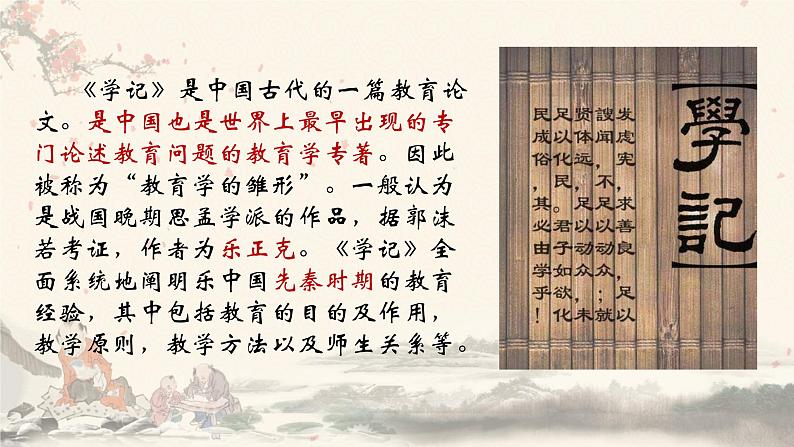 《学记》是中国古代的一篇教育论
文。是中国也是世界上最早出现的专
门论述教育问题的教育学专著。因此
被称为“教育学的雏形”。一般认为
是战国晚期思孟学派的作品，据郭沫
若考证，作者为乐正克。《学记》全
面系统地阐明乐中国先秦时期的教育
经验，其中包括教育的目的及作用，
教学原则，教学方法以及师生关系等。
學記
发虑宪，求善良，足以
謏闻，不足以动众；就
贤体远，足以动众，未
足以化民。君子如欲化
民成俗，其必由学乎！